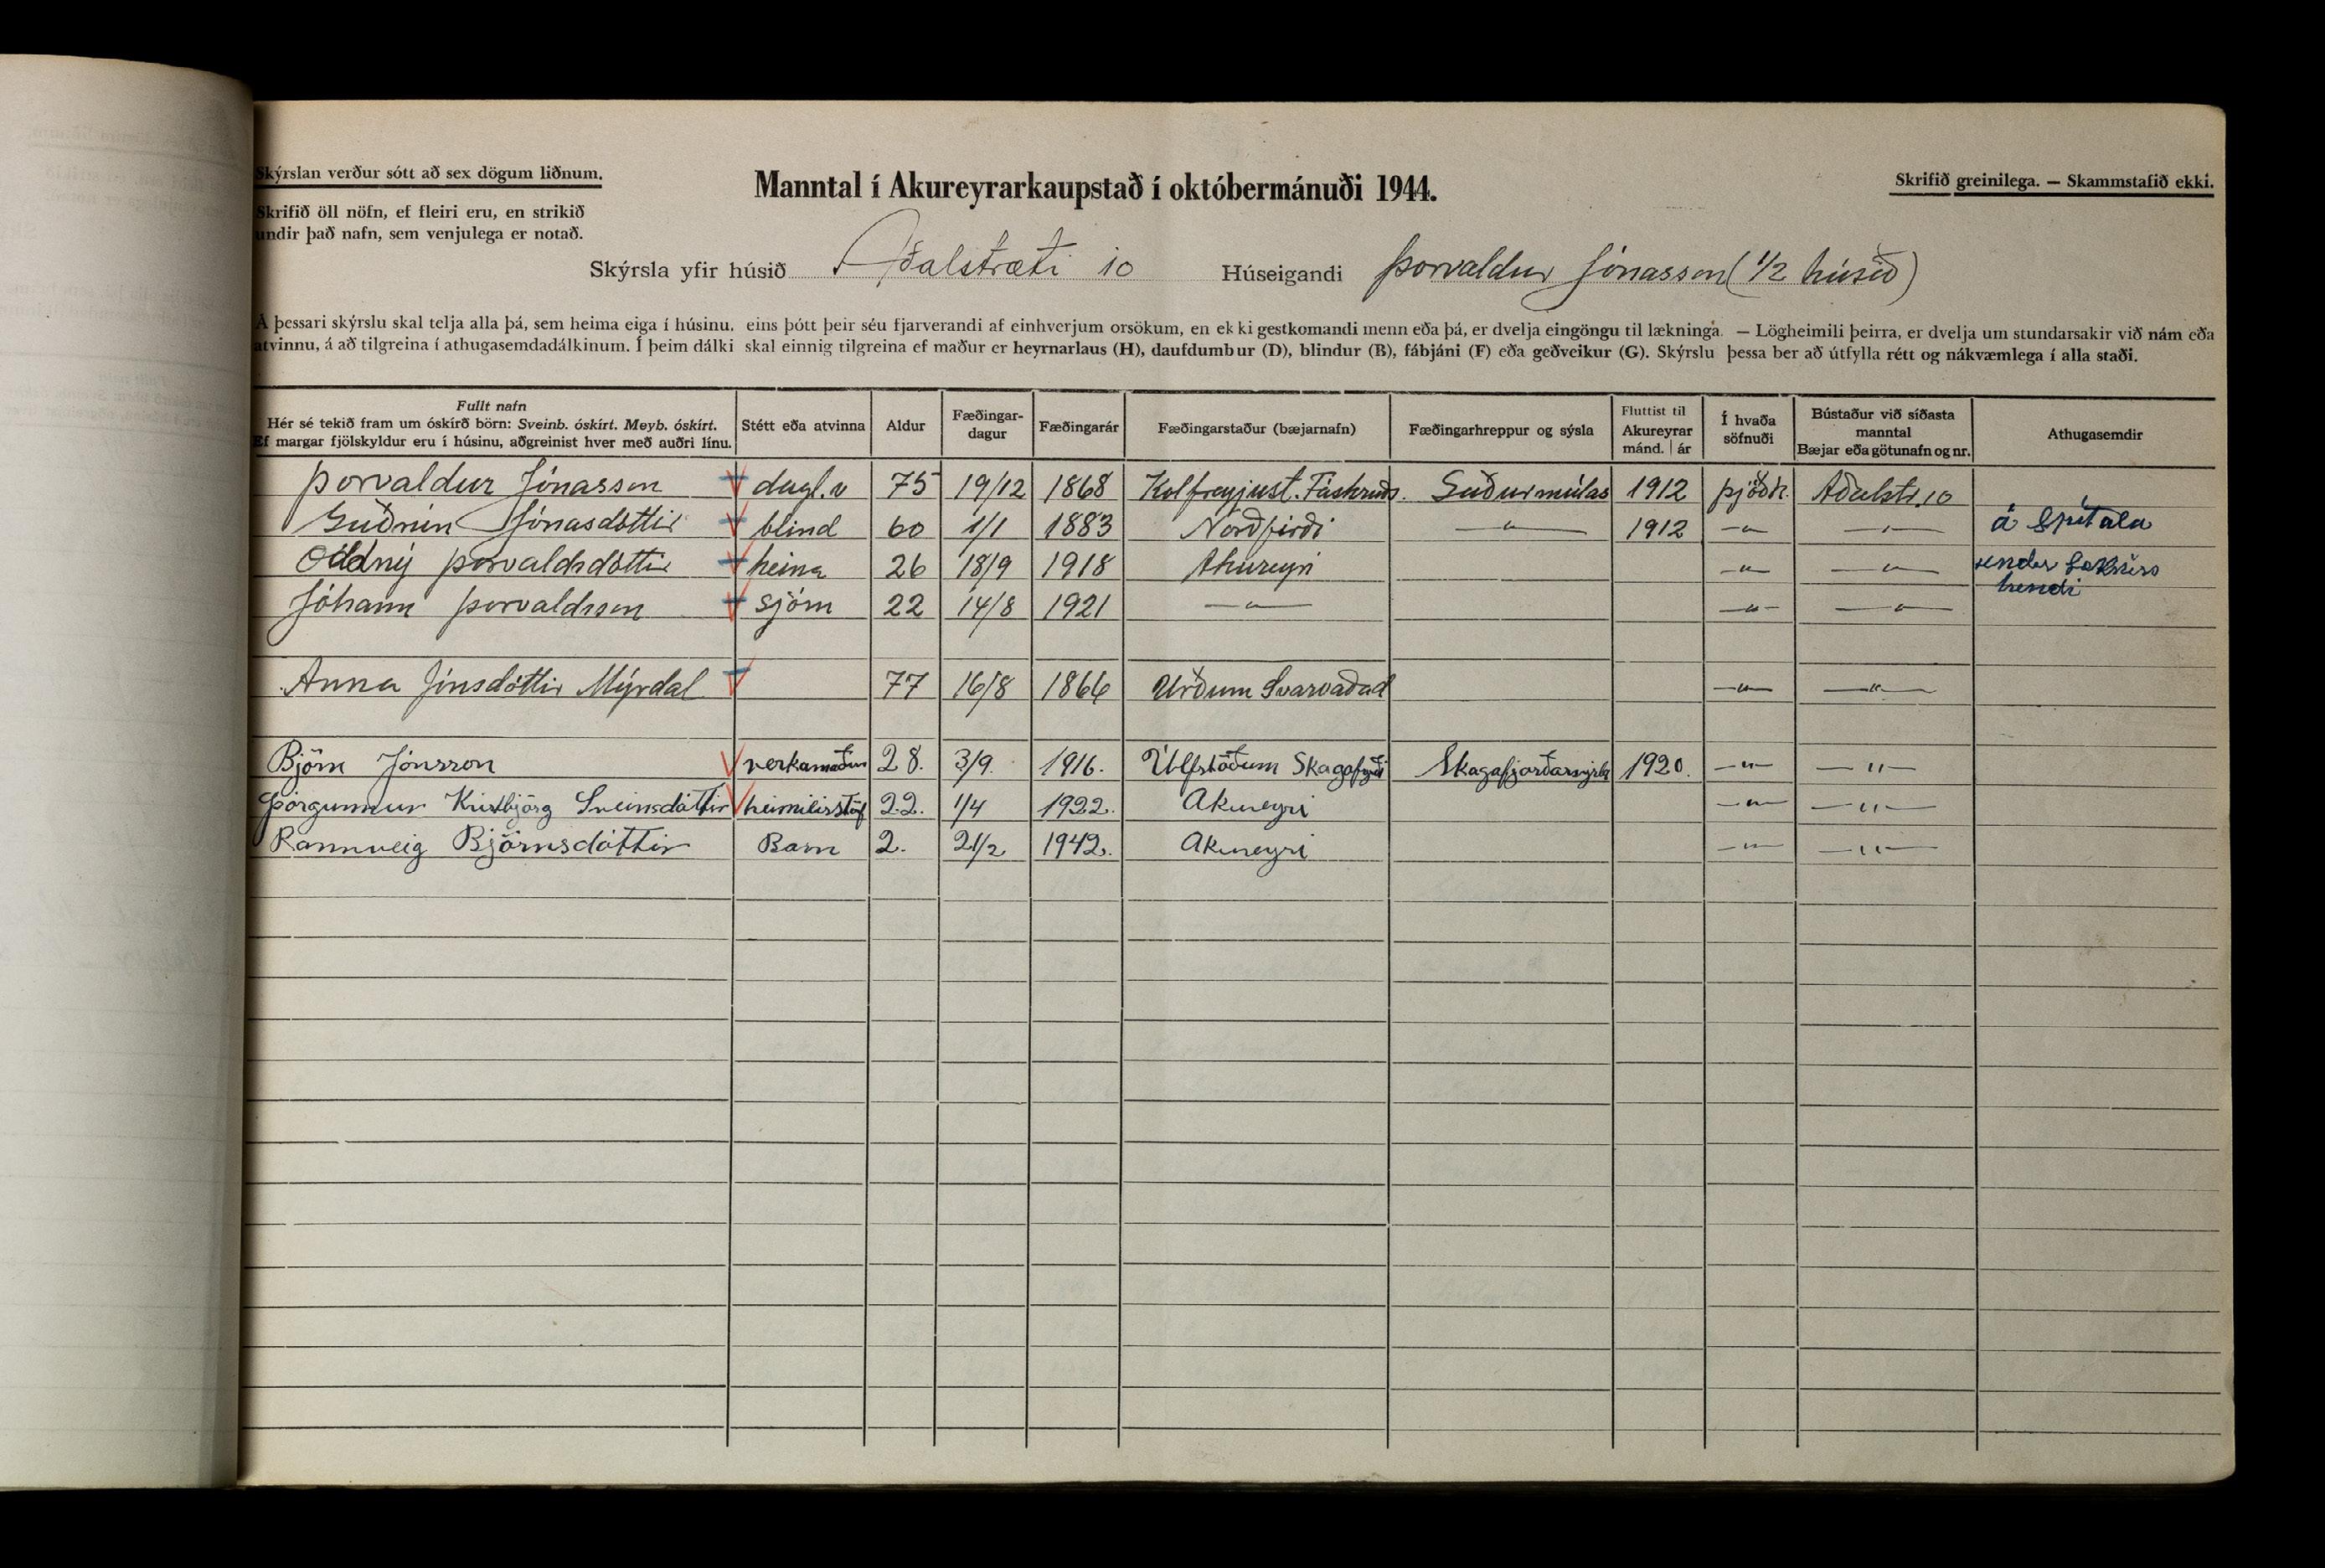 Skýrslan verður sótt að sex dögum liðnum.
Manntal í Akureyrarkaupstað í októbermánuði 1944.
Skrifið greinilega. — Skammstafið ekki.
Skrifið öll nöfn, ef fleiri eru, en strikið
undir það nafn, sem venjulega er notað.
Skýrsla yfir húsið Aðalstræti 10 Húseigandi Þorvaldur Jónasson (1/2 húsið)
Á þessari skýrslu skal telja alla þá, sem heima eiga í húsinu, eins þótt þeir séu fjarverandi af einhverjum orsökum, en ekki gestkomandi menn eða þá, er dvelja eingöngu til lækninga. — Lögheimili þeirra, er dvelja um stundarsakir við nám eða
atvinnu, á að tilgreina í athugasemdadálkinum. Í þeim dálki skal einnig tilgreina ef maður er heyrnarlaus (H), daufdumbur (D), blindur (B), fábjáni (F) eða geðveikur (G). Skýrslu þessa ber að útfylla rétt og nákvæmlega í alla staði.
Fullt nafn
Hér sé tekið fram um óskírð börn: Sveinb. óskírt. Meyb. óskírt.
Ef margar fjölskyldur eru í húsinu, aðgreinist hver með auðri línu.
Stétt eða atvinna
Aldur
Fæðingar-
dagur
Fæðingarár
Fæðingarstaður (bæjarnafn)
Fæðingarhreppur og sýsla
Fluttist til
Akureyrar
mánd. | ár
Í hvaða
söfnuði
Bústaður við síðasta
manntal
Bæjar eða götunafn og nr.
Athugasemdir
Þorvaldur Jónasson dagl.v 75 19/12 1868 Kolfreyjust. Fáskruðs. Suðurmúlas 1912 þjóðk. Aðalstr. 10
Guðrún Jónasdóttir blind 60 1/1 1883 Norðfirði —"— 1912 —"— —"— á Spítala
Oddný Þorvaldsdóttir heima 26 18/9 1918 Akureyri —"— —"— undir læknis
hendi
Jóhann Þorvaldsson sjóm 22 14/8 1921 —"— —"— —"—
Anna Jónsdóttir Mýrdal 77 16/8 1866 Urðum Svarvaðad —"— —"—
Björn Jónsson verkamaður 28. 3/9. 1916. Úlfstöðum Skagafyrði Skagafjarðarsýsla 1920. —"— —"—
Þórgunnur Kristbjörg Sveinsdóttir heimilisstöf 22. 1/4 1922. Akureyri —"— —"—
Rannveig Björnsdóttir Barn 2. 21/2 1942. Akureyri —"— —"—